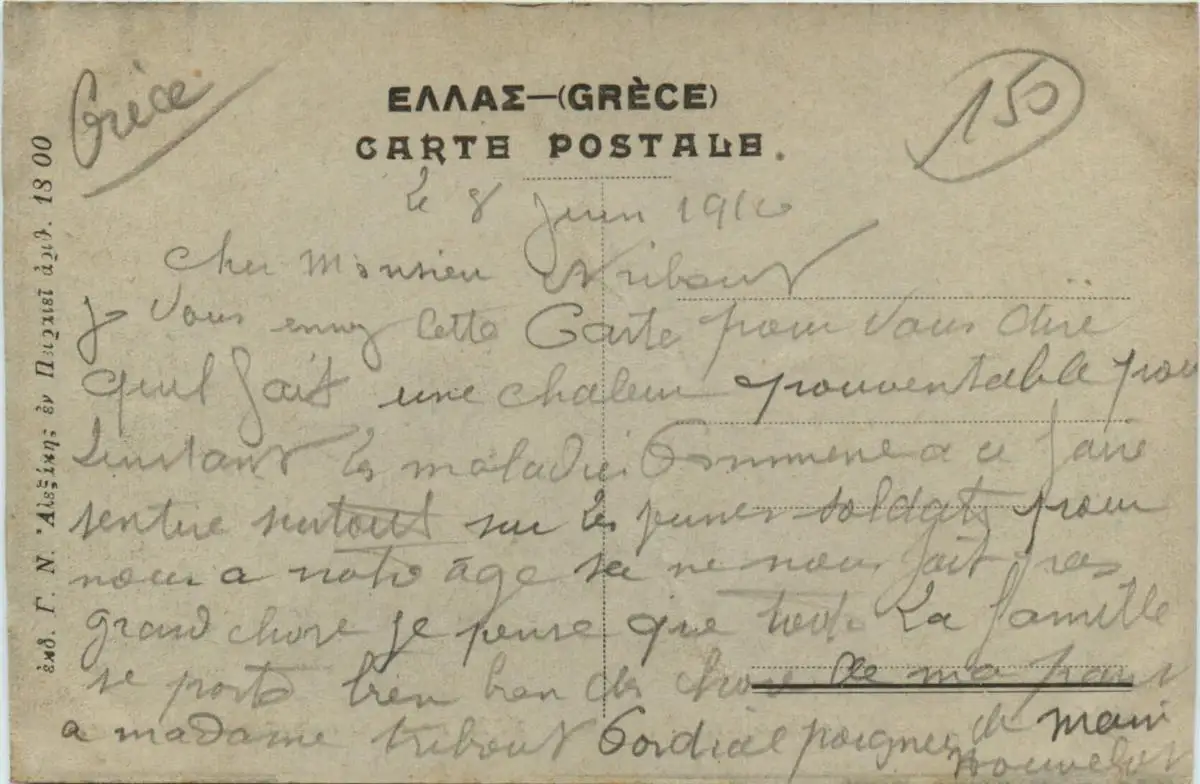 Grèce
150
ΕΛΛΑΣ—(GRÈCE)
CARTE POSTALE.
le 8 Juin 1916
Cher Monsieur Tribout
Je Vous envoy cette Carte pour Vous dire
quil fait une chaleur épouventable pour
linstant les maladies Commence a ce faire
sentire surtout sur les jeunes soldats pour
nous a notre âge sa ne nous fait pas
grand chose je pense que toute La famille
se porte bien bien des chose de ma part
a madame tribout Cordial poignée de main
ἐκδ. Γ. Ν. Ἀλεξάκης ἐν Πειραιεῖ ἀριθ. 18 00